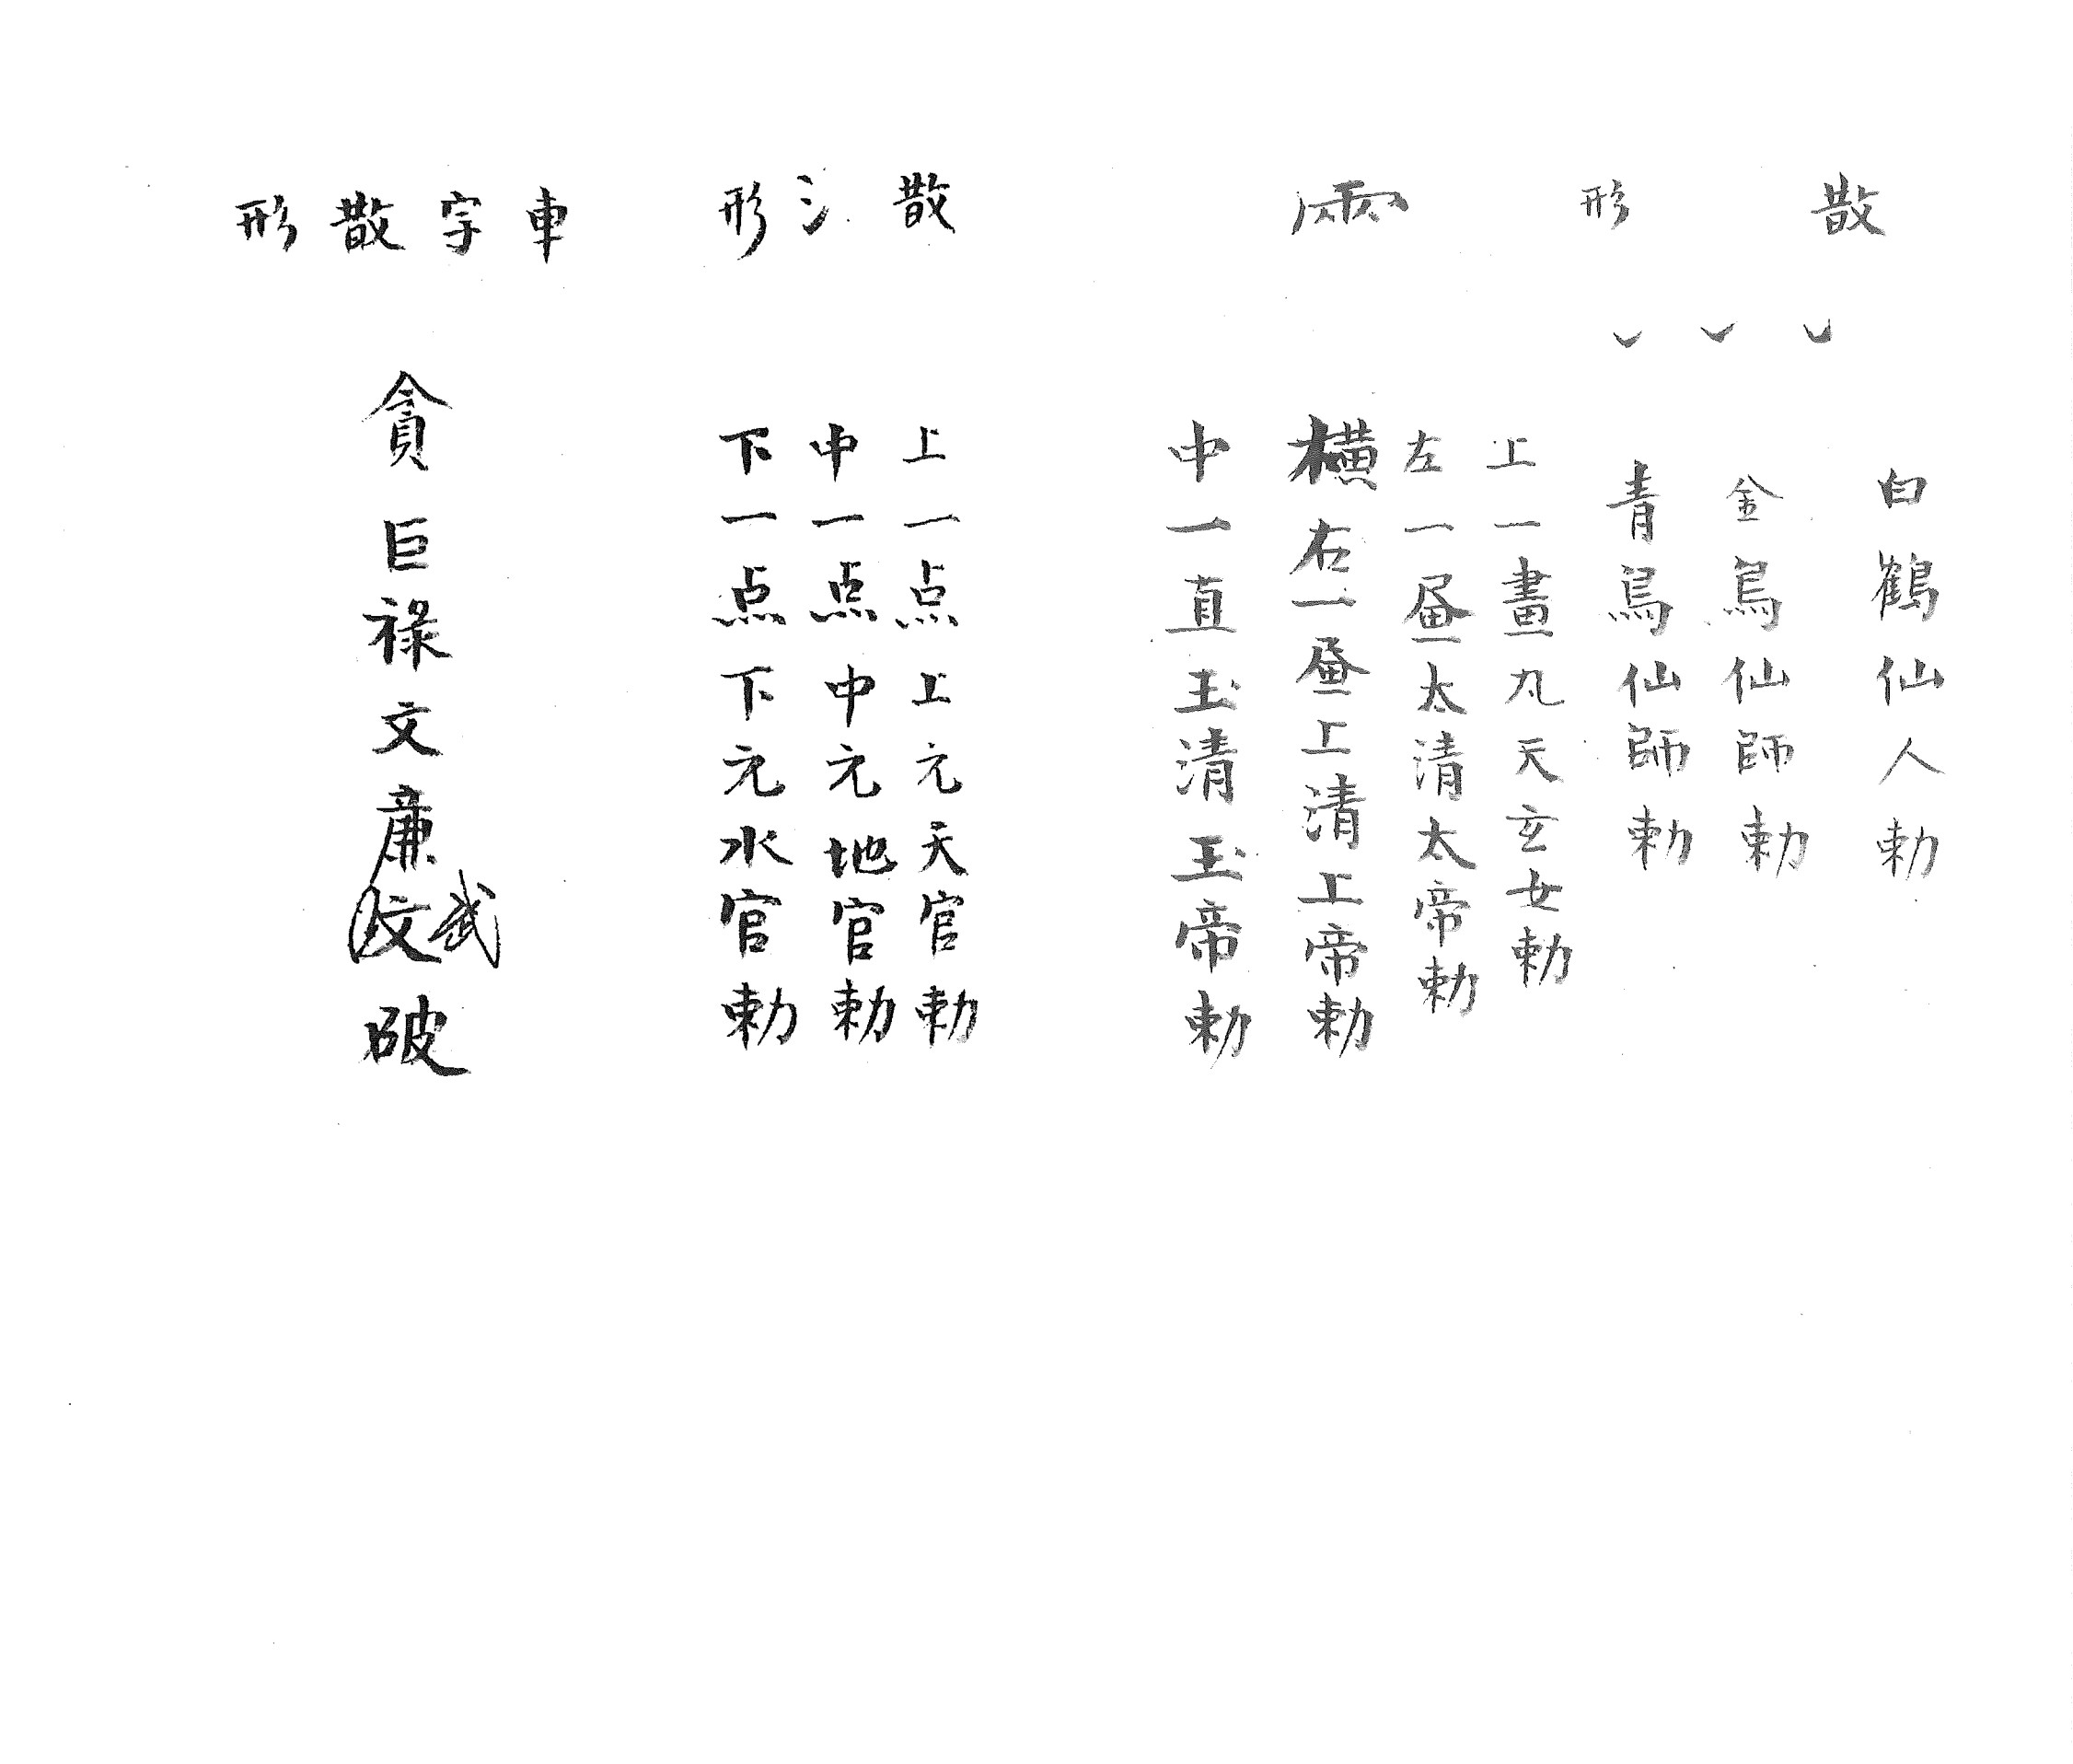 散形
白鶴仙人勅
金鳥仙師勅
青鳥仙師勅
雨
上一畫九天玄女勅
左一昼太清太帝勅
橫右一昼上清上帝勅
中一直玉清玉帝勅
散氵形
上一点上元天官勅
中一点中元地官勅
下一点下元水官勅
車字散形
貪巨祿文廉武破